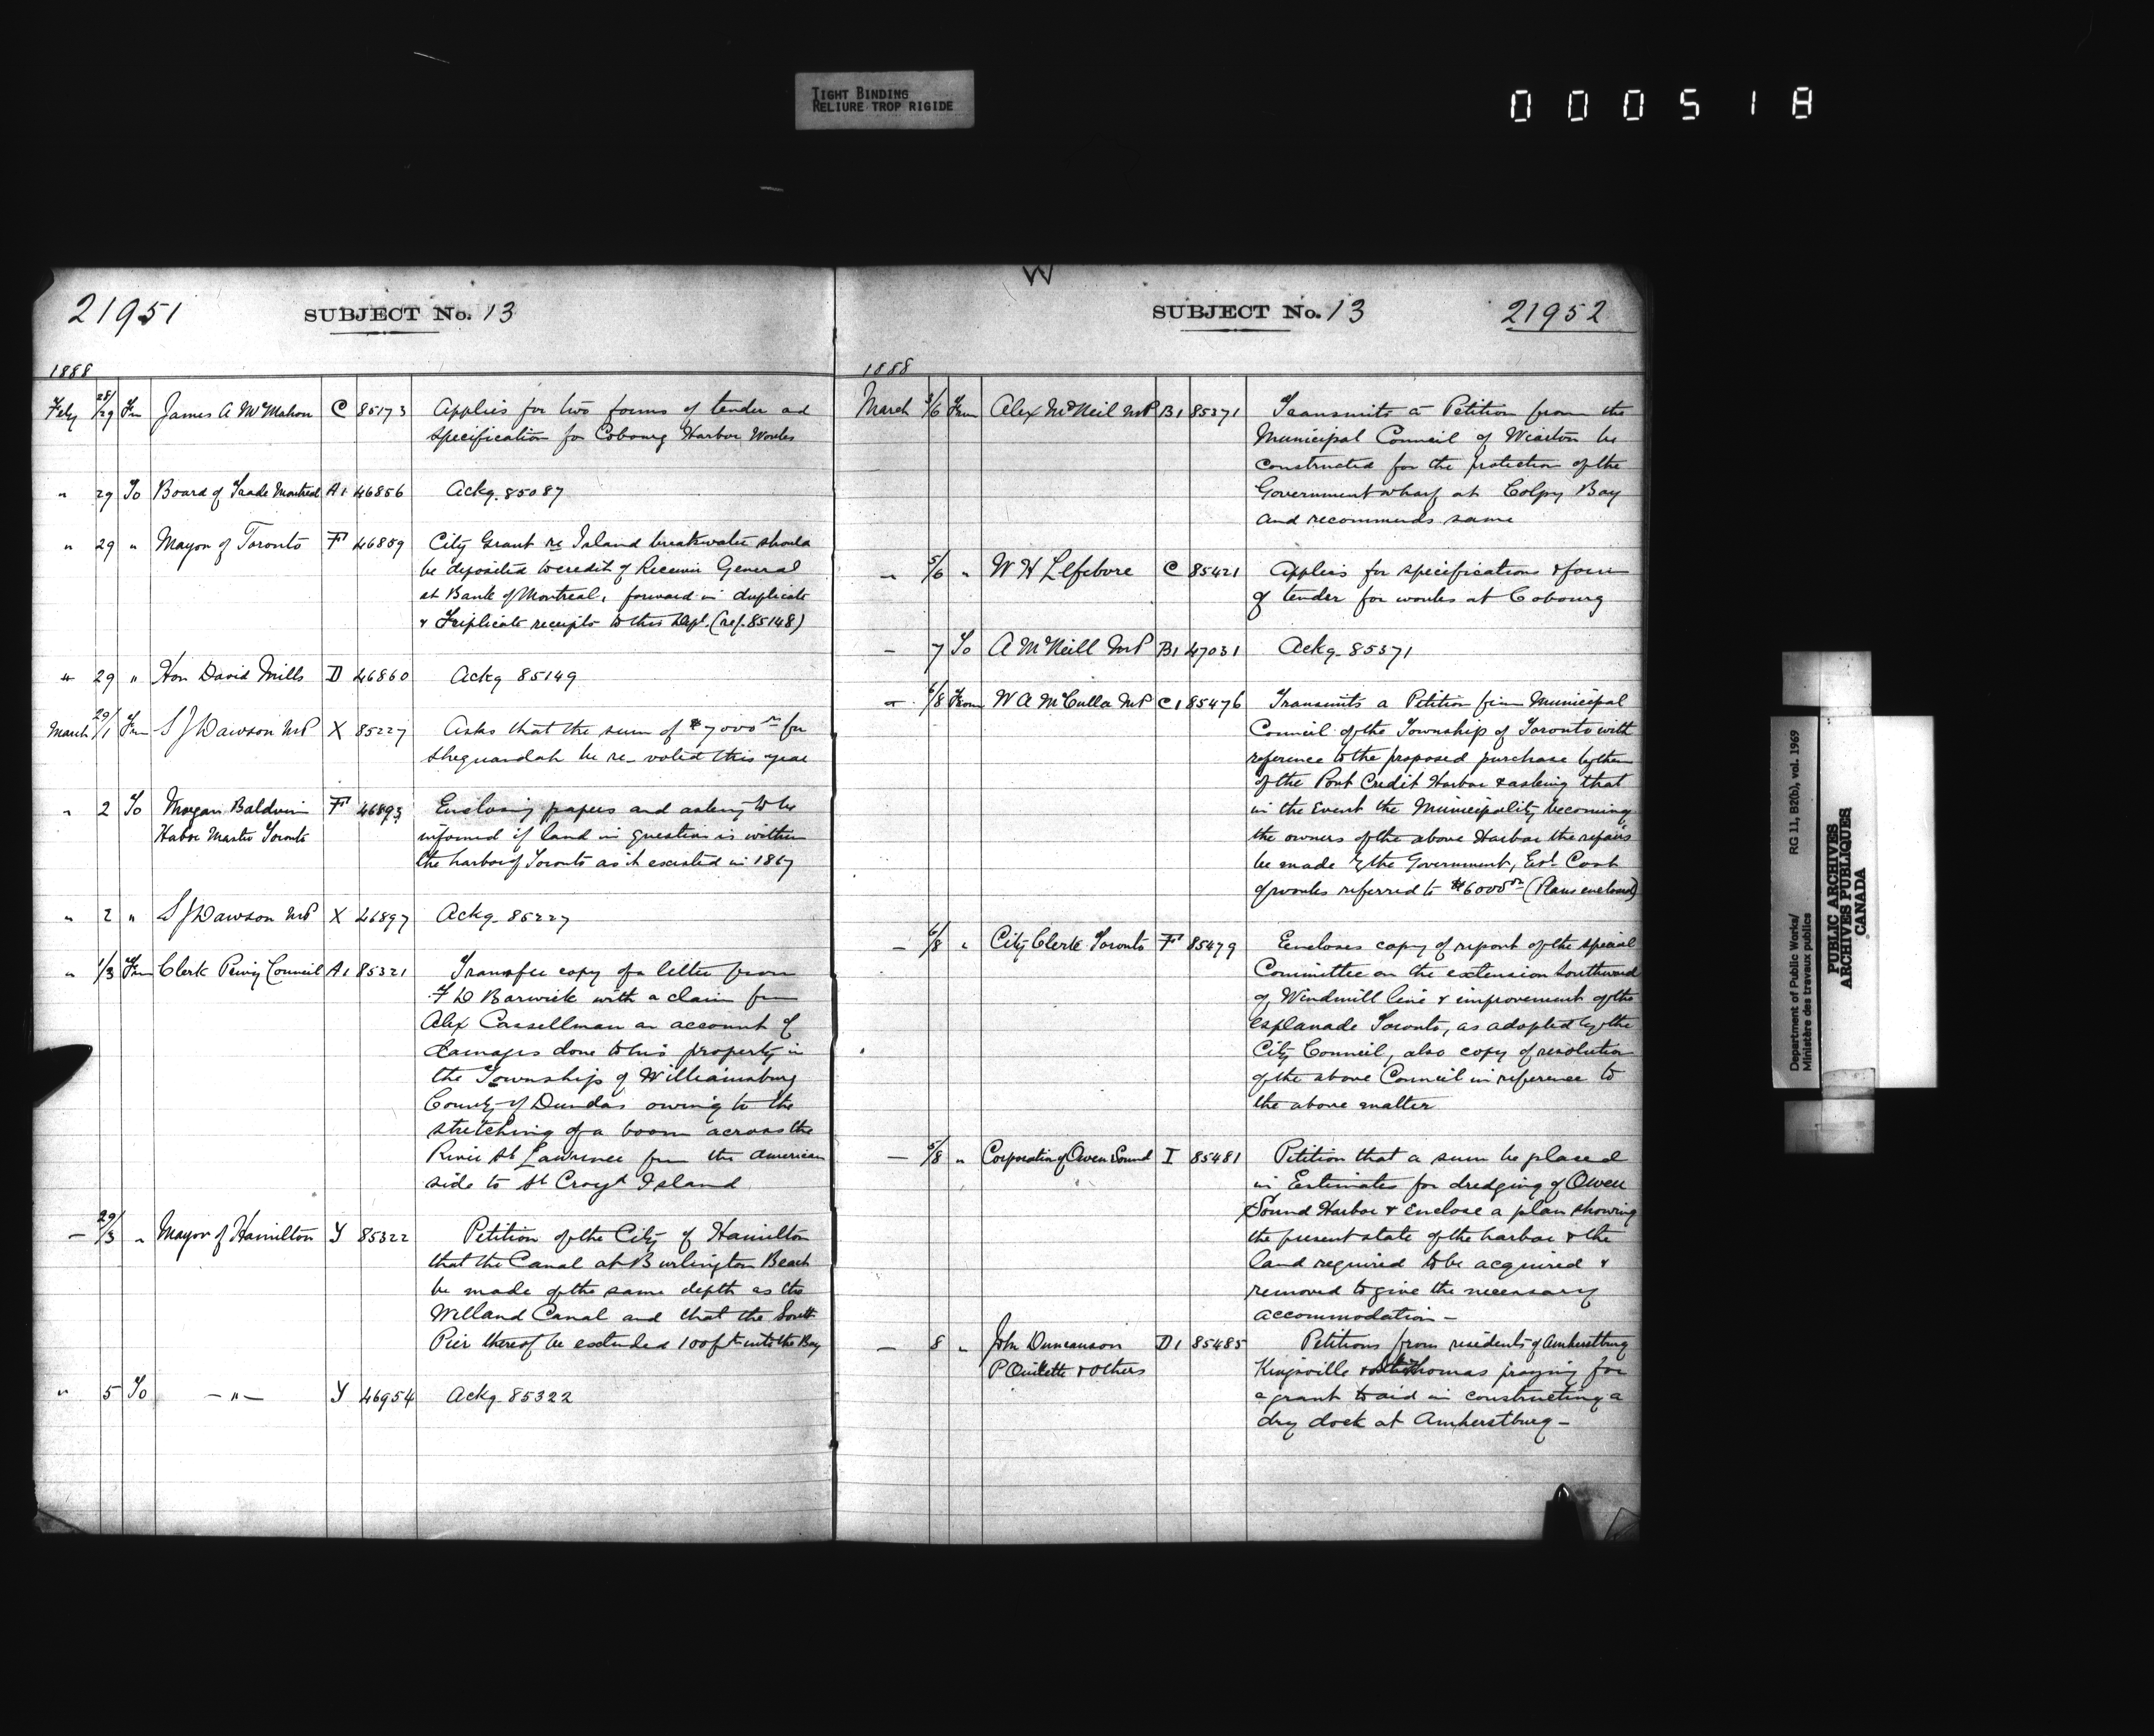 TIGHT BINDING
RELIURE TROP RIGIDE
000518
21951
SUBJECT No. 13
1888
Feby 28/29 Fm James A McMahon C 85173 Applies for two forms of tender and
specification for Cobourg Harbor Works
" 29 To Board of Trade Montreal A1 46856 Ackg. 85087
" 29 " Mayor of Toronto F1 46859 City Grant re Island breakwater should
be deposited to credit of Receiver General
at Bank of Montreal, forward in duplicate
& Triplicate receipts to this Dept. (ref. 85148)
" 29 " Hon David Mills D 46860 Ackg 85149
March 29/1 Fm S J Dawson MP X 85227 Asks that the sum of $7000 00 for
Sheguandah be re-voted this year
" 2 To Morgan Baldwin F1 46893 Enclosing papers and asking to be
Habor Master Toronto informed if land in question is within
the harbor of Toronto as it existed in 1867
" 2 " S J Dawson MP X 46897 Ackg. 85227
" 1/3 Fm Clerk Privy Council A1 85321 Transfer copy of a letter from
F D Barwick with a claim from
Alex Cassellman on account of
damages done to his property in
the Township of Williamsburg
County of Dundas owing to the
stretching of a boom across the
River St Lawrence from the American
side to St Croyt Island
— 29/3 " Mayor of Hamilton Y 85322 Petition of the City of Hamilton
that the Canal at Burlington Beach
be made of the same depth as the
Welland Canal and that the South
Pier thereof be extended 100 ft into the Bay
" 5 To — " — Y 46954 Ackg. 85322
W
SUBJECT No. 13
21952
1888
March 3/6 From Alex McNeil MP B1 85371 Transmits a Petition from the
Municipal Council of Wiarton be
constructed for the protection of the
Government wharf at Colpoy Bay
and recommends same
— 5/6 " W H Lefebvre C 85421 Applies for specifications & form
of tender for works at Cobourg
— 7 To A McNeill MP B1 47031 Ackg. 85371
— 6/8 From W A McCulla MP C1 85476 Transmits a Petition from Municipal
Council of the Township of Toronto with
reference to the proposed purchase by them
of the Port Credit Harbor & asking that
in the Event the Municipality becoming
the owners of the above Harbor the repairs
be made by the Government, Est. Cost
of works referred to $6000 00 (Plans enclosed)
— 6/8 " City Clerk Toronto F1 85479 Encloses copy of report of the special
Committee on the extension Southward
of Windmill line & improvement of the
Esplanade Toronto, as adopted by the
City Council, also copy of resolution
of the above Council in reference to
the above matter
— 5/8 " Corporation of Owen Sound I 85481 Petition that a sum be placed
in Estimates for dredging of Owen
Sound Harbor & enclose a plan showing
the present state of the harbor & the
land required to be acquired &
removed to give the necessary
accommodation —
— 8 " John Duncanson D1 85485 Petitions from residents of Amherstburg
P Ouilette & Others Kingsville & St Thomas praying for
a grant to aid in constructing a
dry dock at Amherstburg —
Department of Public Works/ RG 11, B2(b), vol. 1969
Ministère des travaux publics
PUBLIC ARCHIVES
ARCHIVES PUBLIQUES
CANADA